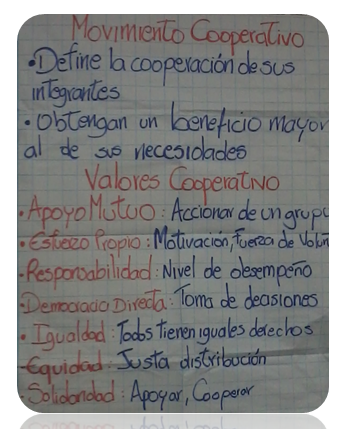 Movimiento Cooperativo
• Define la cooperación de sus
integrantes
• Obtengan un beneficio mayor
al de sus necesidades
Valores Cooperativo
• Apoyo Mutuo: Accionar de un grupo
• Esfuerzo Propio: Motivación, Fuerza de Volun
• Responsabilidad: Nivel de desempeño
• Democracia Directa: Toma de decisiones
• Igualdad: Todos tienen iguales derechos
- Equidad: Justa distribución
• Solidaridad: Apoyar, Cooperar